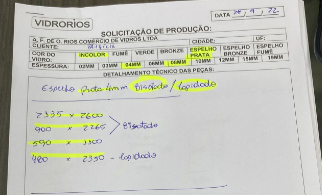 VIDRORIOS
SOLICITAÇÃO DE PRODUÇÃO:
DATA
A. F. DE O. RIOS COMERCIO DE VIDROS LTDA
CIDADE: UF:
CLIENTE:
COR DO VIDRO: INCOLOR FUMÊ VERDE BRONZE ESPELHO PRATA ESPELHO BRONZE ESPELHO FUMÊ
ESPESSURA: 02MM 03MM 04MM 06MM 08MM 10MM 12MM 15MM 19MM
DETALHAMENTO TÉCNICO DAS PEÇAS:
Espelho prata 4mm Bisotado / Lapidado
2335 x 2600
900 x 2265 Bisotado
590 x 1300
480 x 2350 - Lapidado